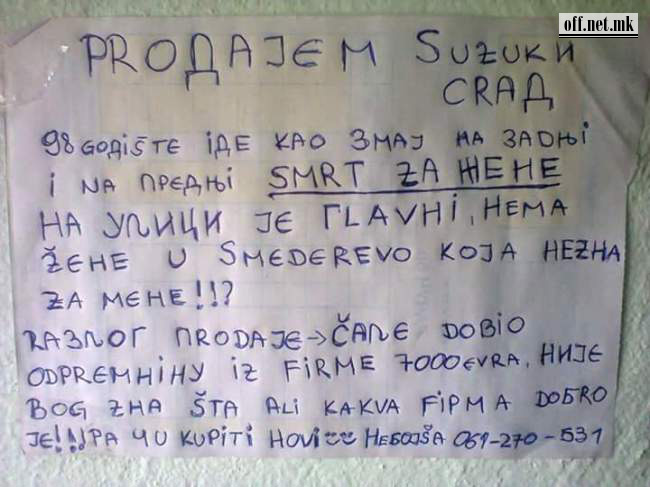 off.net.mk
PRОДАЈЕМ SUZUKИ
CRAД
98 GOДİŠTE İДЕ КАО ЗМАЈ НА ЗАДЊİ
İ NA ПРЕДЊİ SMRT ZA ЖЕНЕ
НА УЛИЦИ ЈЕ ГLAVНİ, НЕМА
ŽЕНЕ U SMEDEREVO КОЈА НЕZНА
ZA МЕНЕ!!?
RAZЛОГ ПRОДАЈЕ→ČАЛЕ DОBIO
ОDPREMНİНУ İZ FİRME 7000 EVRA, НИЈЕ
BOG ZНА ŠTA ALİ КАКVА FİРМА DОБRО
ЈЕ!!! PA ЧU KUPİTİ НОVİ НЕБОЈŠA 061-270-531